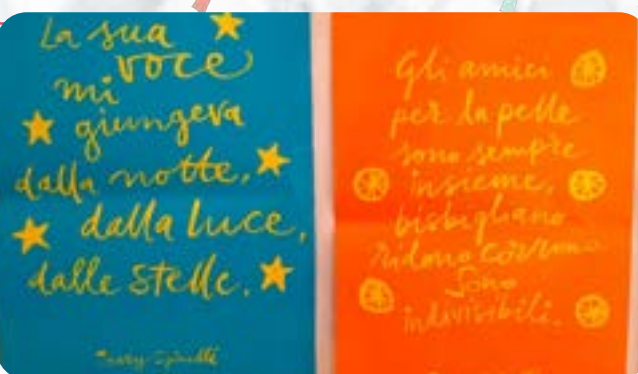 La sua
voce
mi
giungeva
dalla notte,
dalla luce,
dalle stelle.
Gli amici
per la pelle
sono sempre
insieme,
bisbigliano
ridono corrono
Sono
indivisibili.